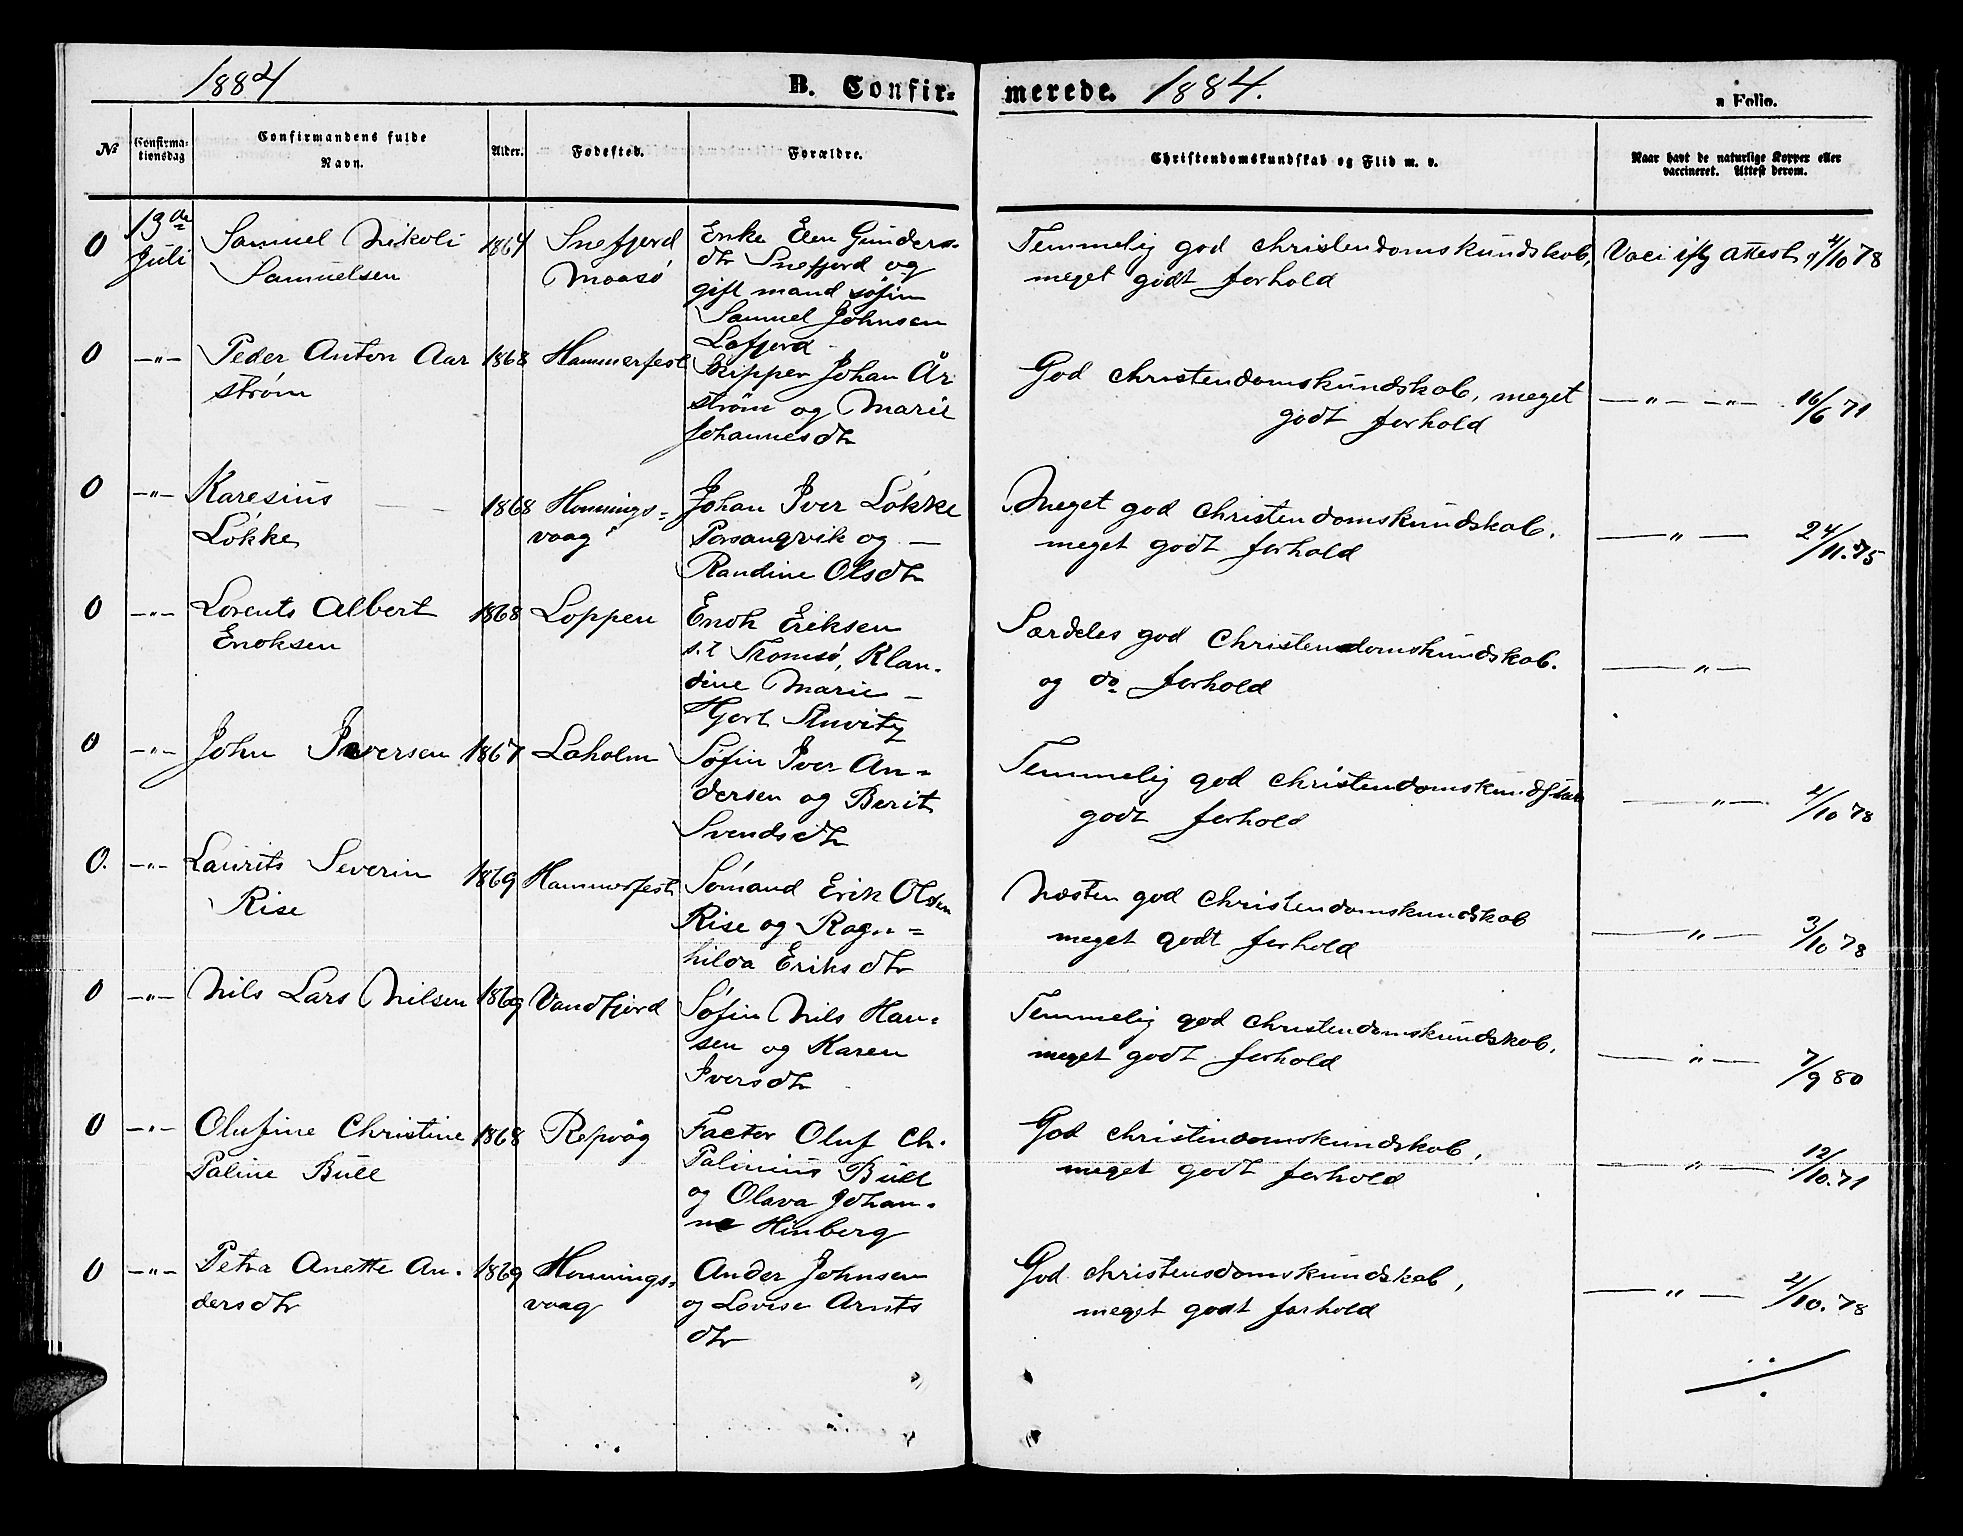 1884
B. Confirmerede. 1884.
a Folio.
No
Confirmationsdag
Confirmandens fulde Navn.
Alder.
Fødested.
Forældre.
Christendomskundskab og Flid m. v.
Naar havt de naturlige Kopper eller vaccineret. Attest derom.
0 13de Juli
Samuel Nikoli
Samuelsen
1864
Snefjord
Maasö
Enke Elen Gunders-
dtr Snefjord og
gift mand söfin
Samuel Johnsen
Lafjord
Temmelig god christendomskundskab,
meget godt forhold
Vaci iflg Attest 2/10 78
0 -"-
Peder Anton Aar
strøm
1868
Hammerfest
Skipper Johan År
strøm og Marie
Johannesdtr
God christendomskundskab, meget
godt forhold
-"- -"- 16/6 71
0 -"-
Karesius
Lökke
1868
Honnings-
vaag
Johan Iver Lökke
Porsangvik og
Randine Olsdtr
Meget god christendomskundskab.
meget godt forhold
-"- 24/11.75
0 -"-
Lorents Albert
Enoksen
1868
Loppen
Enok Eriksen
s.t Tromsö, Klau-
dine Marie
Hjort Stuvitz
Særdeles god Christendomskundskab.
og do forhold
-"-
0 -"-
John Iversen
1867
Laholm
Söfin Iver An-
dersen og Berit
Svendsdtr
Temmelig god christendomskundskab
godt forhold
-"- 2/10 78
0. -"-
Laurits Severin
Rise
1869
Hammerfest
Sömand Erik Olsen
Rise og Ragn-
hilda Eriksdtr
Næsten god christendomskundskab
meget godt forhold
-"- 3/10 78
0 -"-
Nils Lars Nilsen
1869
Vandfjord
Söfin Nils Han-
sen og Karen
Iversdtr
Temmelig god christendomskundskab,
meget godt forhold
-"- 7/9 80
0 -"-
Olufine Christine
Paline Büll
1868
Repvåg
Factor Oluf Ch.
Palinius Büll
og Olava Johan-
ne Hinberg
God christendomskundskab,
meget godt forhold
-"- 12/10.71
0 -"-
Petra Anette An-
dersdtr
1869
Honnings-
vaag
Ander Johnsen
og Lovise Arnts
dtr
God christensdomskundskab,
meget godt forhold
-"- 2/10.78